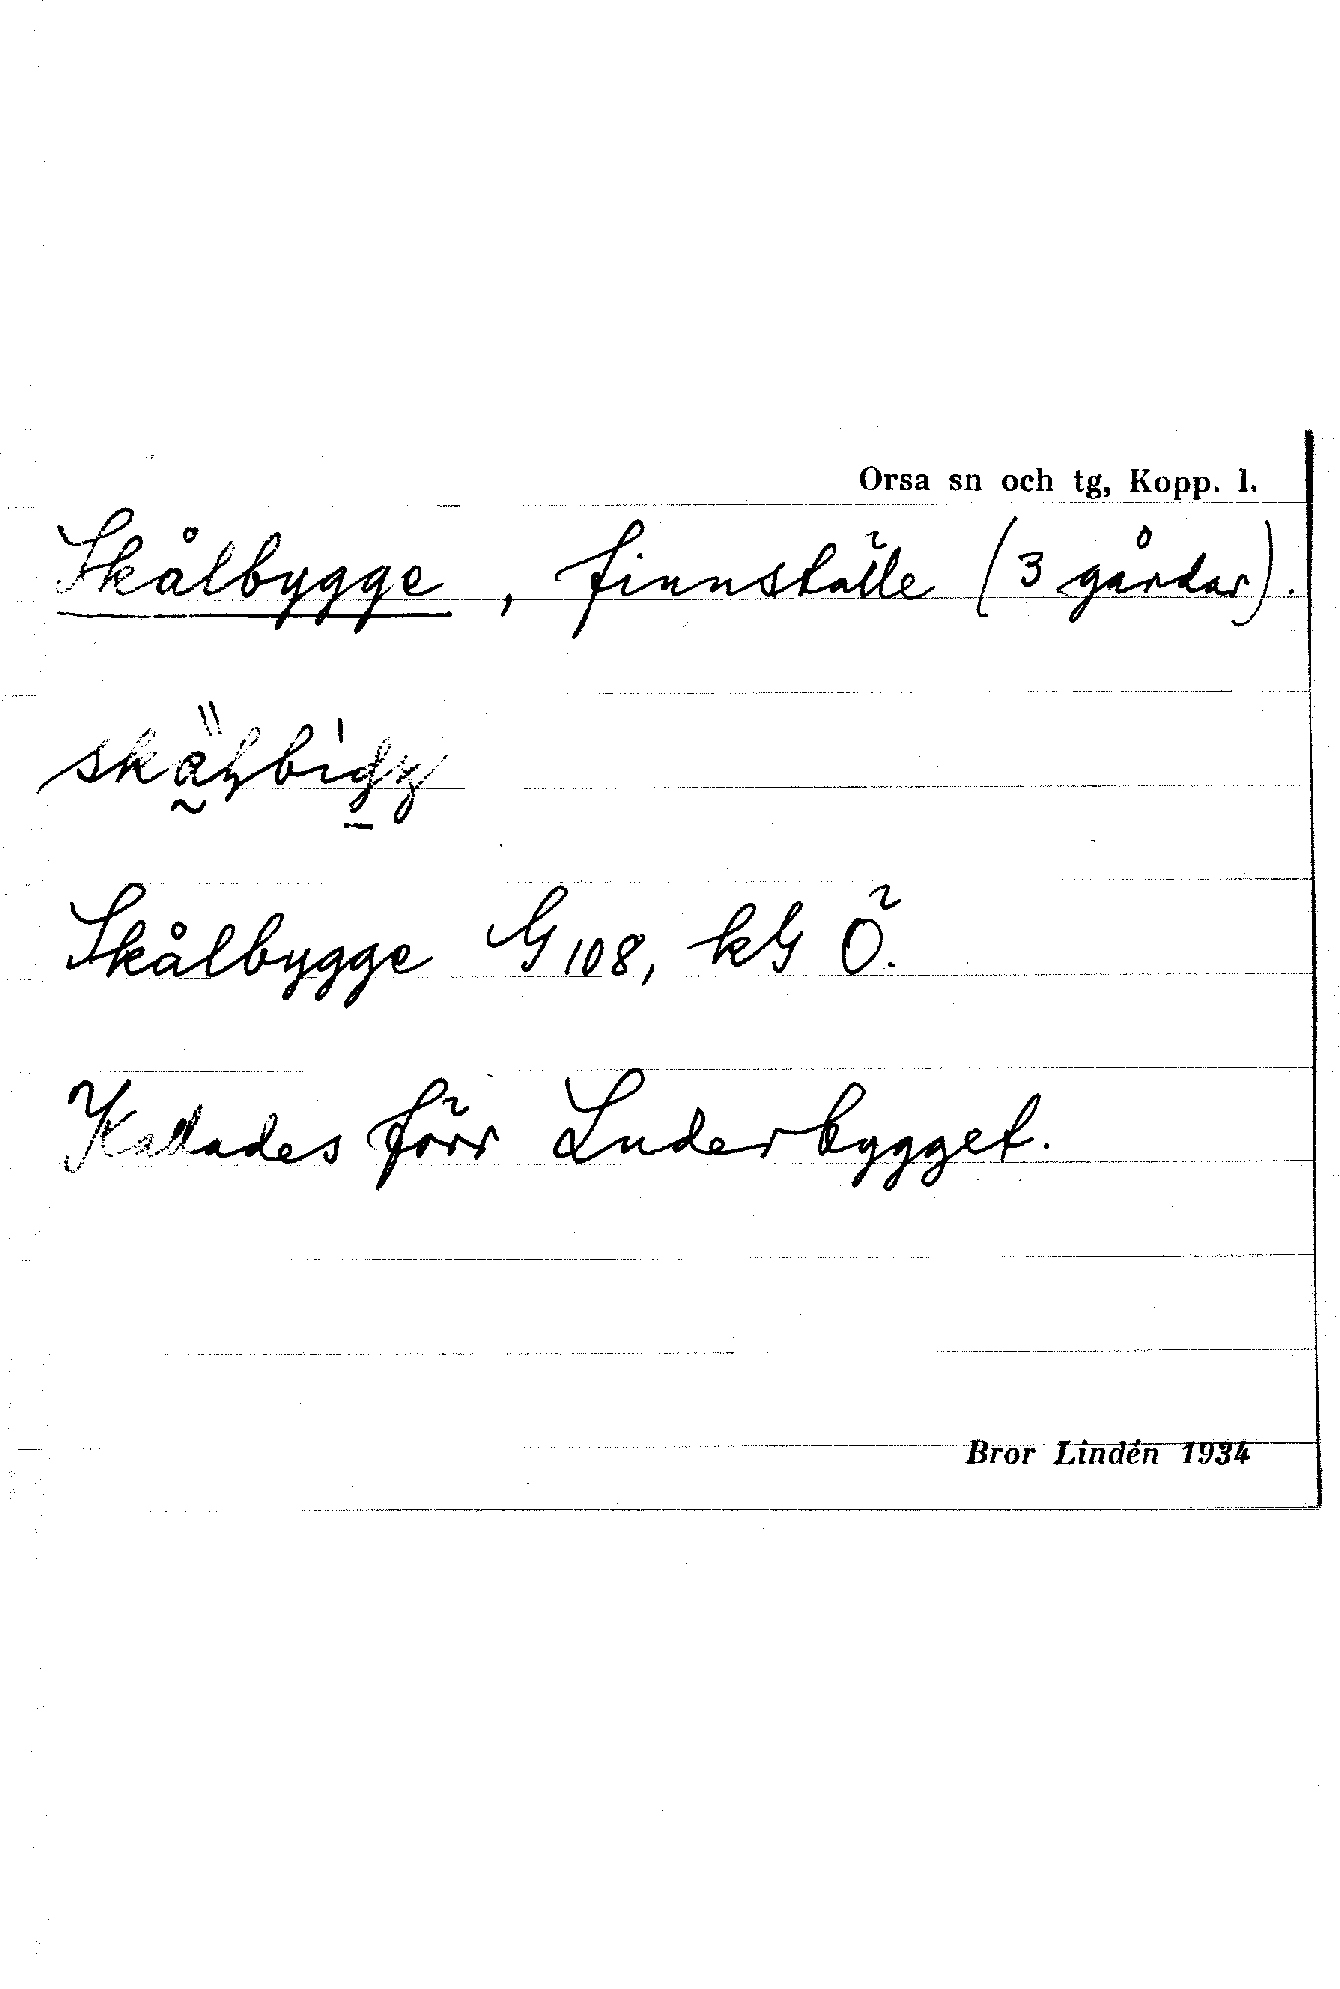 Orsa sn och tg, Kopp. l.
Skålbygge, finnställe (3 gårdar).
Skålbygge G 108, kG Ö.
Kallades förr Luderbygget.
Bror Lindén 1934